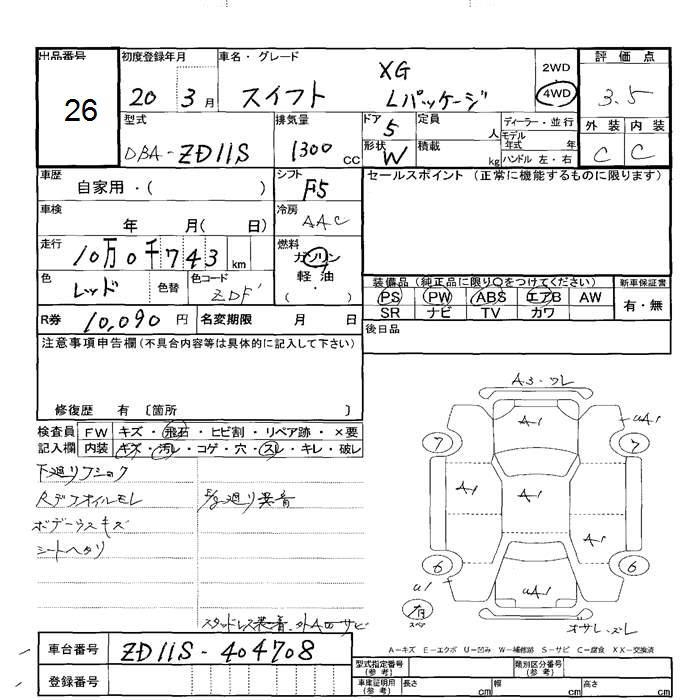 出品番号
26
初度登録年月
20 3月
車名・グレード
スイフト XG Lパッケージ
2WD
4WD
評価点
3.5
外装 内装
C C
型式
DBA-ZD11S
排気量
1300cc
ドア 5
形状 W
定員 人
積載 kg
ディーラー・並行
モデル年式 年
ハンドル 左・右
車歴
自家用・( )
シフト
F5
車検
年 月( 日)
冷房
AAC
走行
10万0千743km
燃料
ガソリン
軽油・
( )
色 レッド
色替
色コード
ZDF
R券 10,090円
名変期限 月 日
セールスポイント(正常に機能するものに限ります)
装備品(純正品に限り○をつけてください)
PS PW ABS エアB AW
SR ナビ TV カワ
新車保証書
有・無
後日品
注意事項申告欄(不具合内容等は具体的に記入して下さい)
修復歴 有 〔箇所 〕
検査員記入欄
FW キズ・飛石・ヒビ割・リペア跡・×要
内装 キズ・汚レ・コゲ・穴・スレ・キレ・破レ
下廻りフショク
Rデフオイルモレ
ボデーウスキズ
シートヘタリ
廻り異音
スタッドレス装着.外
サビ
A3・ワレ
A1
uA1
7
7
A1
A1
A1
6
6
u1
uA1
有
スペア
オサレ、ズレ
A−キズ E−エクボ U−凹み W−補修跡 S−サビ C−腐食 XX−交換済
車台番号
ZD11S-404708
登録番号
型式指定番号(参考)
類別区分番号(参考)
車庫証明用(参考)
長さ cm
幅 cm
高さ cm